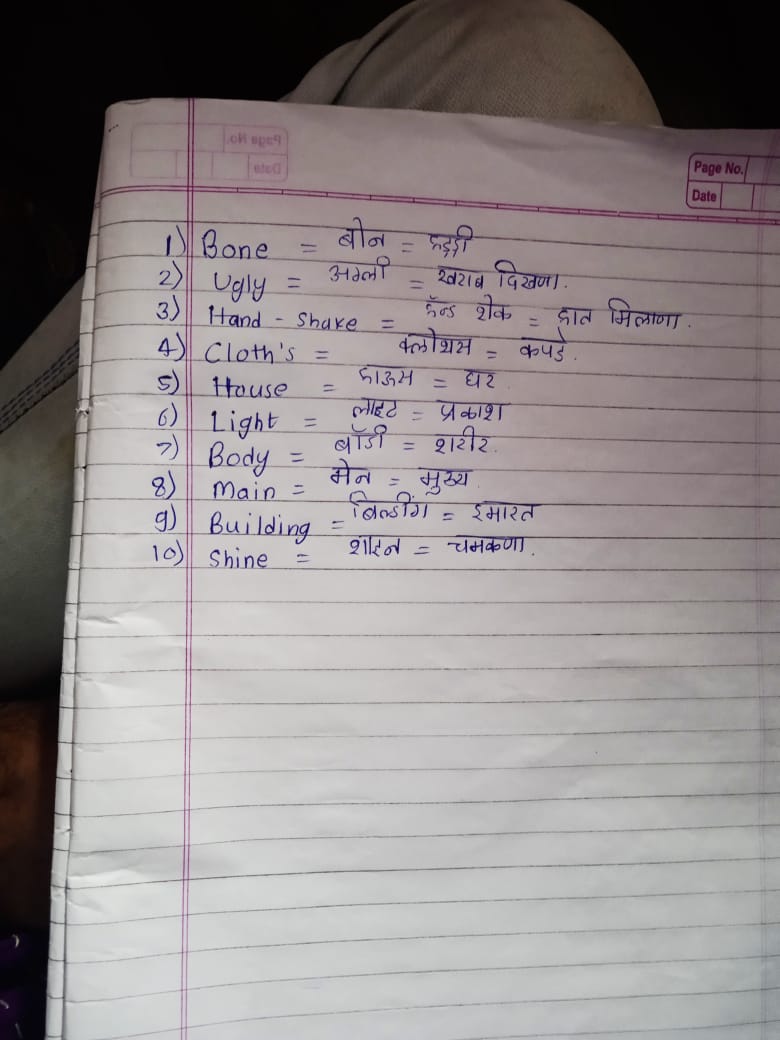 Page No.
Date
Page No.
Date
1) Bone = बोन = हड्डी
2) Ugly = अग्ली = खराब दिखणा.
3) Hand - Shake = हॅन्ड शेक = हात मिलाणा.
4) Cloth's = क्लोथस = कपडे.
5) House = हाऊस = घर.
6) Light = लाइट = प्रकाश
7) Body = बॉडी = शरीर.
8) Main = मेन = मुख्य.
9) Building = बिल्डींग = इमारत
10) Shine = शाइन = चमकणा.